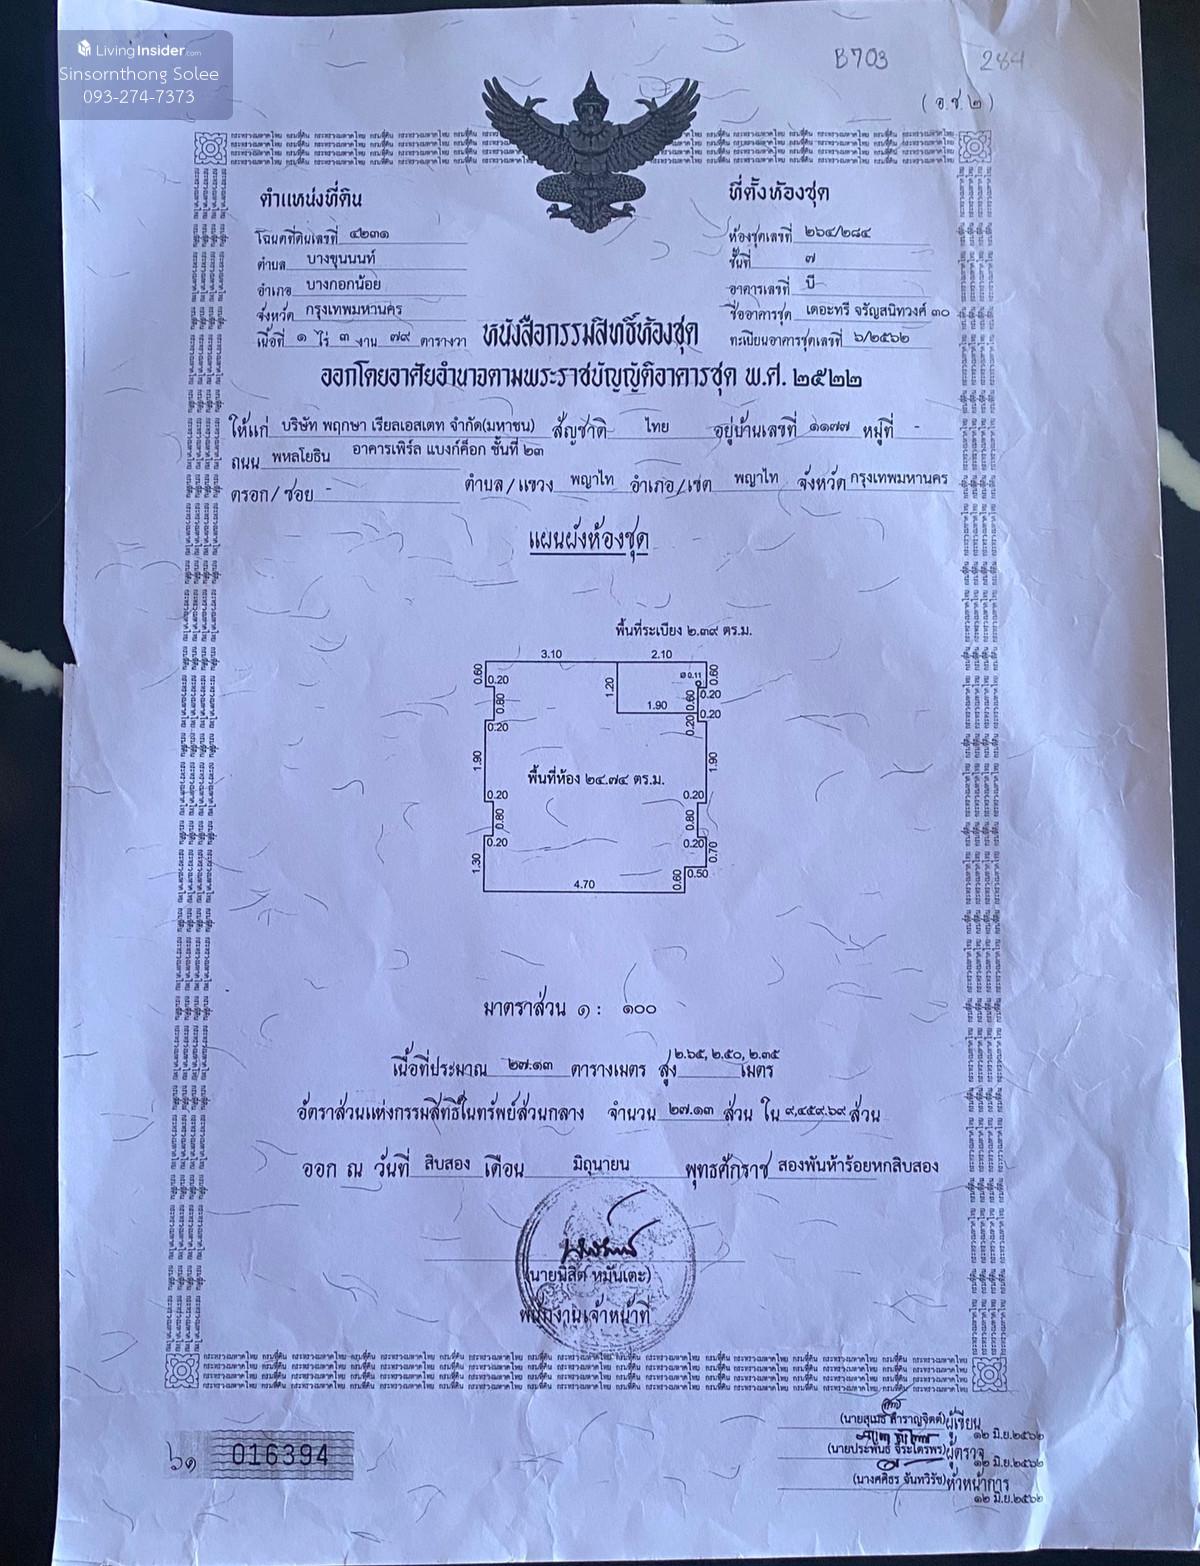 LivingInsider.com
Sinsornthong Solee
093-274-7373
B703
284
(อ.ช.๒)
ตำแหน่งที่ดิน
โฉนดที่ดินเลขที่ ๔๒๓๑
ตำบล บางขุนนนท์
อำเภอ บางกอกน้อย
จังหวัด กรุงเทพมหานคร
เนื้อที่ ๑ ไร่ ๓ งาน ๗๙ ตารางวา
ที่ตั้งห้องชุด
ห้องชุดเลขที่ ๒๖๔/๒๘๔
ชั้นที่ ๗
อาคารเลขที่ บี
ชื่ออาคารชุด เดอะทรี จรัญสนิทวงศ์ ๓๐
ทะเบียนอาคารชุดเลขที่ ๖/๒๕๖๒
หนังสือกรรมสิทธิ์ห้องชุด
ออกโดยอาศัยอำนาจตามพระราชบัญญัติอาคารชุด พ.ศ. ๒๕๒๒
ให้แก่ บริษัท พฤกษา เรียลเอสเตท จำกัด(มหาชน) สัญชาติ ไทย อยู่บ้านเลขที่ ๑๑๗๗ หมู่ที่ -
ถนน พหลโยธิน อาคารเพิร์ล แบงก์ค็อก ชั้นที่ ๒๓
ตรอก/ซอย - ตำบล/แขวง พญาไท อำเภอ/เขต พญาไท จังหวัด กรุงเทพมหานคร
แผนผังห้องชุด
พื้นที่ระเบียง ๒.๓๙ ตร.ม.
3.10 2.10
0.60 0.20 1.20 ø 0.11 0.60
0.80 1.90 0.60 0.20
0.20 0.20 0.20
1.90 พื้นที่ห้อง ๒๔.๗๔ ตร.ม. 1.90
0.20 0.20
0.80 0.80
0.20 0.20 0.70
1.30 4.70 0.60 0.50
มาตราส่วน ๑ : ๑๐๐
เนื้อที่ประมาณ ๒๗.๑๓ ตารางเมตร สูง ๒.๖๕, ๒.๕๐, ๒.๓๕ เมตร
อัตราส่วนแห่งกรรมสิทธิ์ในทรัพย์ส่วนกลาง จำนวน ๒๗.๑๓ ส่วน ใน ๙,๔๕๙.๖๙ ส่วน
ออก ณ วันที่ สิบสอง เดือน มิถุนายน พุทธศักราช สองพันห้าร้อยหกสิบสอง
(นายนิสิต หมันเตะ)
พนักงานเจ้าหน้าที่
(นายสุเมธ สำราญจิตต์) ผู้เขียน
๑๒ มิ.ย.๒๕๖๒
(นายประพันธ์ จิระไตรพร) ผู้ตรวจ
๑๒ มิ.ย.๒๕๖๒
(นางศศิธร จันทวิรัช) หัวหน้าการ
๑๒ มิ.ย.๒๕๖๒
๖๑ 016394